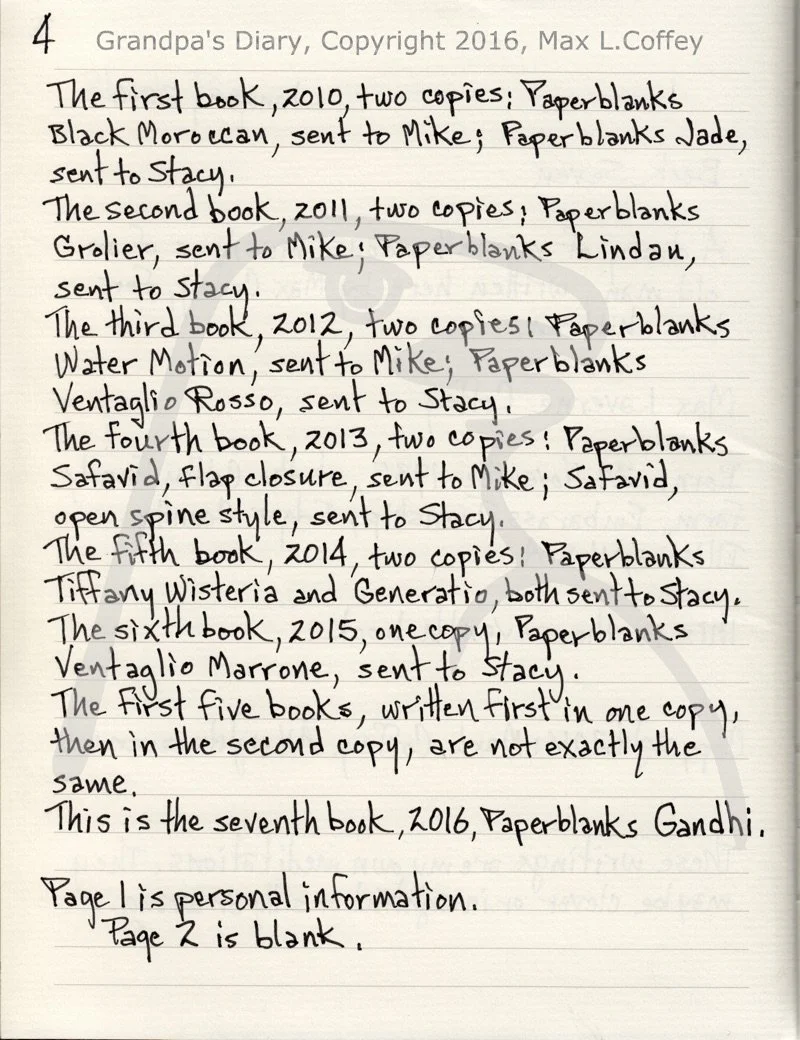 4
Grandpa's Diary, Copyright 2016, Max L.Coffey
The first book, 2010, two copies: Paperblanks
Black Moroccan, sent to Mike; Paperblanks Jade,
sent to Stacy.
The second book, 2011, two copies; Paperblanks
Grolier, sent to Mike; Paperblanks Lindau,
sent to Stacy.
The third book, 2012, two copies: Paperblanks
Water Motion, sent to Mike; Paperblanks
Ventaglio Rosso, sent to Stacy.
The fourth book, 2013, two copies: Paperblanks
Safavid, flap closure, sent to Mike; Safavid,
open spine style, sent to Stacy.
The fifth book, 2014, two copies: Paperblanks
Tiffany Wisteria and Generatio, both sent to Stacy.
The sixth book, 2015, one copy, Paperblanks
Ventaglio Marrone, sent to Stacy.
The first five books, written first in one copy,
then in the second copy, are not exactly the
same.
This is the seventh book, 2016, Paperblanks Gandhi.
Page 1 is personal information.
Page 2 is blank.